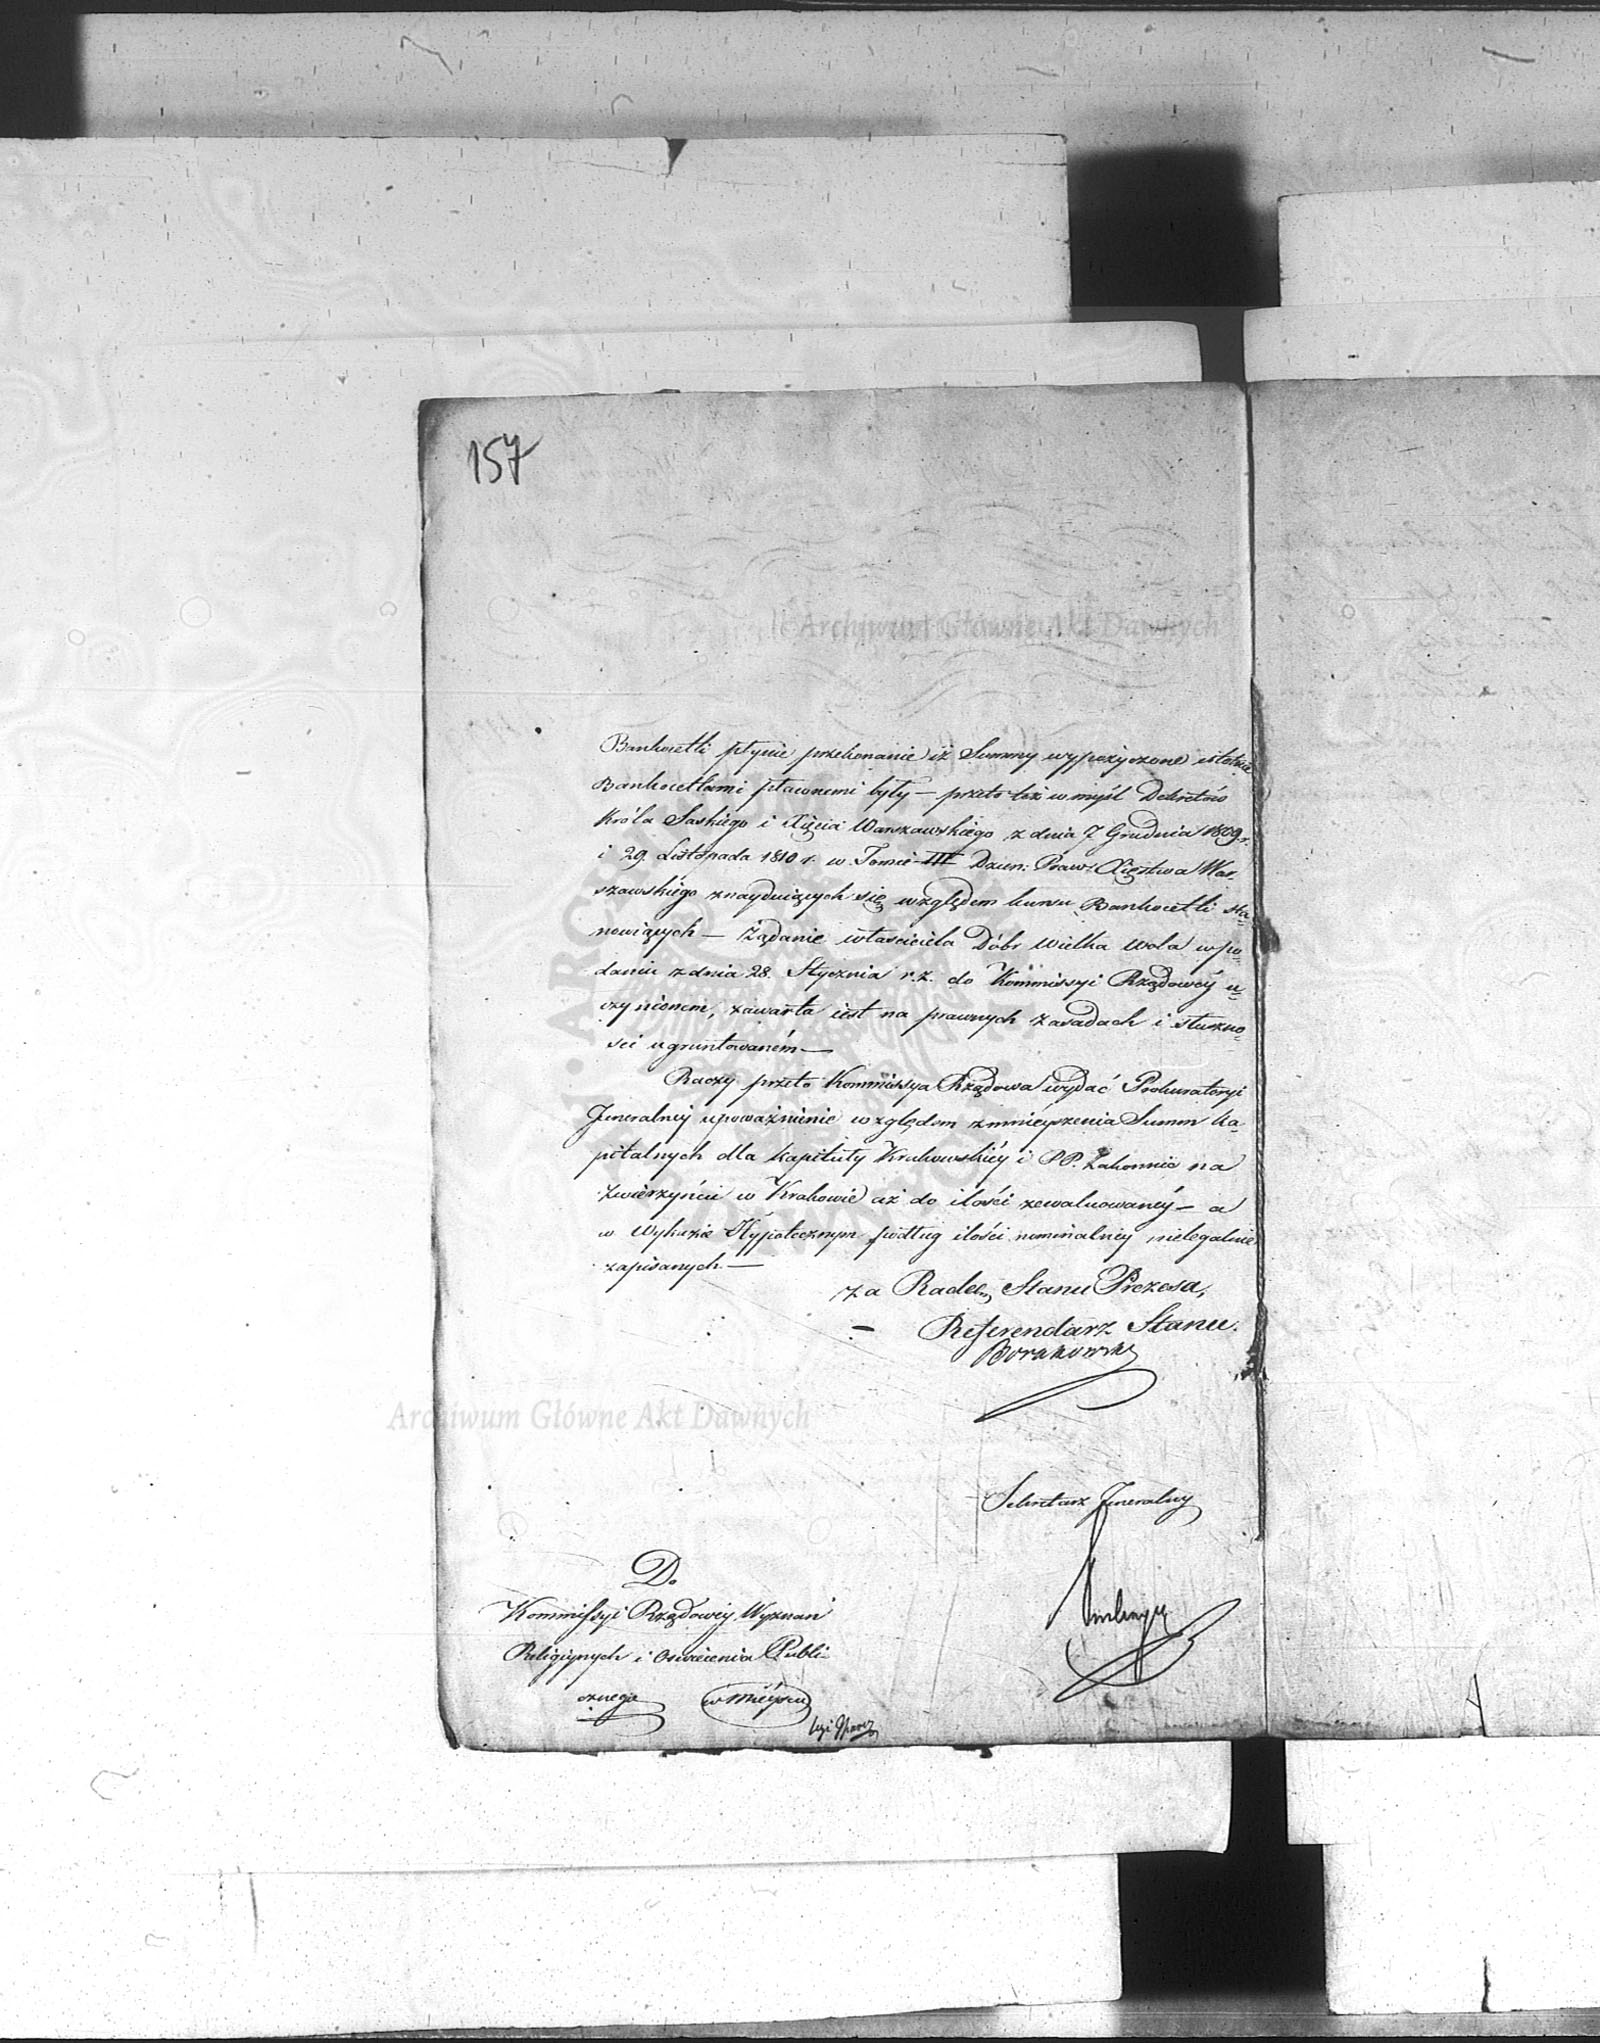 157
Bankocetli płynie przekonanie iż Summy wypożyczone istotnie
Bankocetlami płaconemi były — przeto też w myśl Dekretów
Króla Saskiego i Xięcia Warszawskiego z dnia 7 Grudnia 1809 r.
i 29 Listopada 1810 r. w Tomie III Dzien: Praw: Xięstwa War.
szawskiego znayduiących się względem kursu Bankocetli sta=
nowiących — Żądanie właściciela Dóbr Wielka Wola w po=
daniu z dnia 28. Stycznia r. z. do Kommissyi Rządowéy u=
czynionem, zawarte iest na prawnych zasadach i słuszno=
ści ugruntowaném —
Raczy przeto Kommissya Rządowa wydać Prokuratoryi
Jeneralnéy upoważnienie względem zmnieyszenia Summ ka=
pitalnych dla Kapituły Krakowskiéy i PP. Zakonnic na
Zwierzyńcu w Krakowie aż do ilości zewaluowanéy — a
w Wykazie Hypotecznym podług ilości nominalnéy nielegalnie
zapisanych. —
za Radcę Stanu Prezesa,
Referendarz Stanu.
Borakowski
Sekretarz Jeneralny
Do
Kommissyi Rządowéy Wyznań
Religiynych i Oświecenia Publi=
cznego w mieyscu
Archiwum Główne Akt Dawnych
Archiwum Główne Akt Dawnych